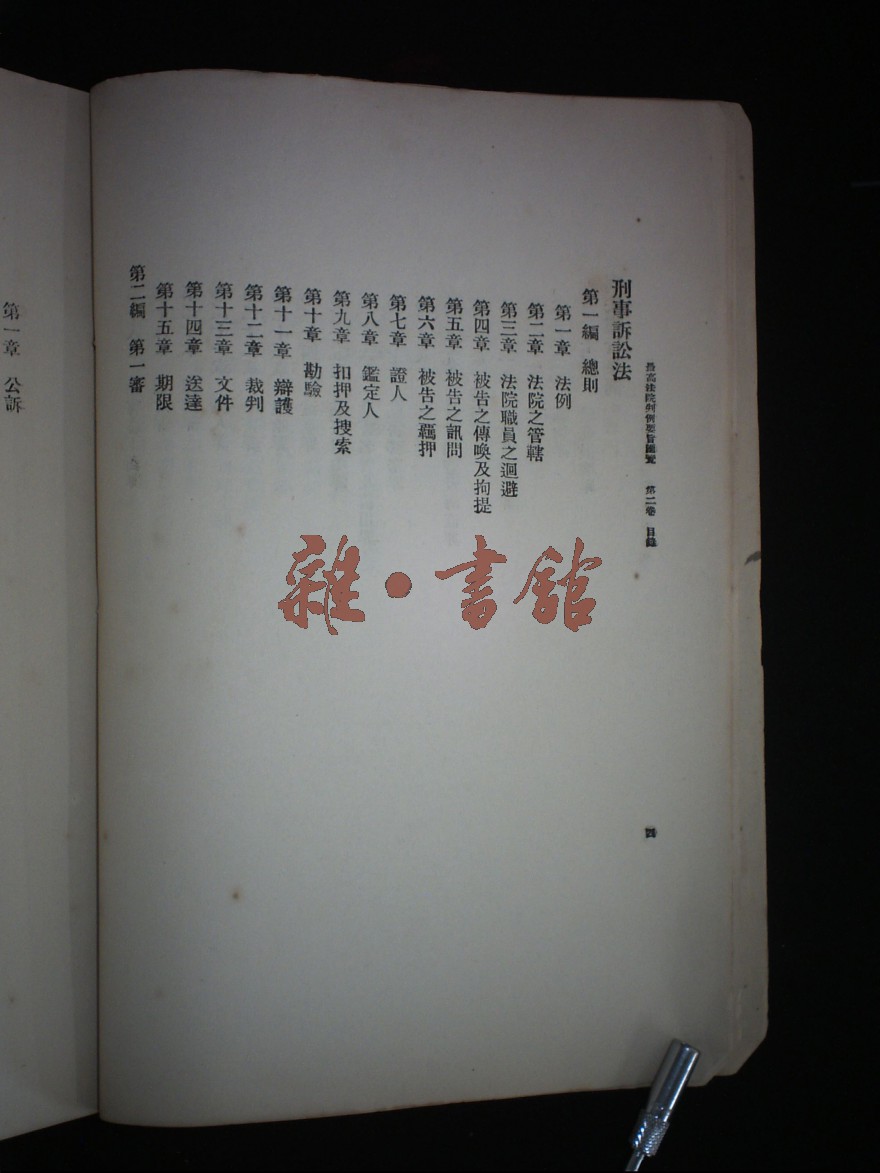 最高法院判例要旨匯覽　第二卷　目錄
四
刑事訴訟法
第一編　總則
第一章　法例
第二章　法院之管轄
第三章　法院職員之迴避
第四章　被告之傳喚及拘提
第五章　被告之訊問
第六章　被告之羈押
第七章　證人
第八章　鑑定人
第九章　扣押及搜索
第十章　勘驗
第十一章　辯護
第十二章　裁判
第十三章　文件
第十四章　送達
第十五章　期限
第二編　第一審
第一章　公訴
雜·書館